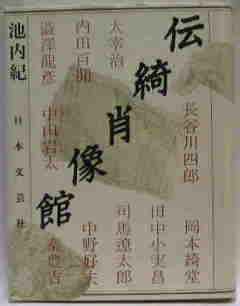 伝綺肖像館
岡本綺堂
長谷川四郎
田中小実昌
司馬遼太郎
中野好夫
秦豊吉
太宰治
内田百閒
中山岩太
澁澤龍彦
池内紀
日本文芸社